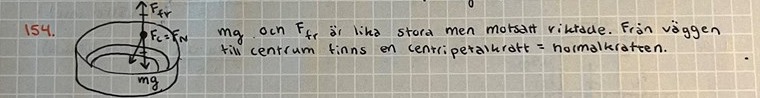 154.
F_fr
F_c = F_N
mg
mg och F_fr är lika stora men motsatt riktade. Från väggen
till centrum finns en centripetalkraft = normalkraften.